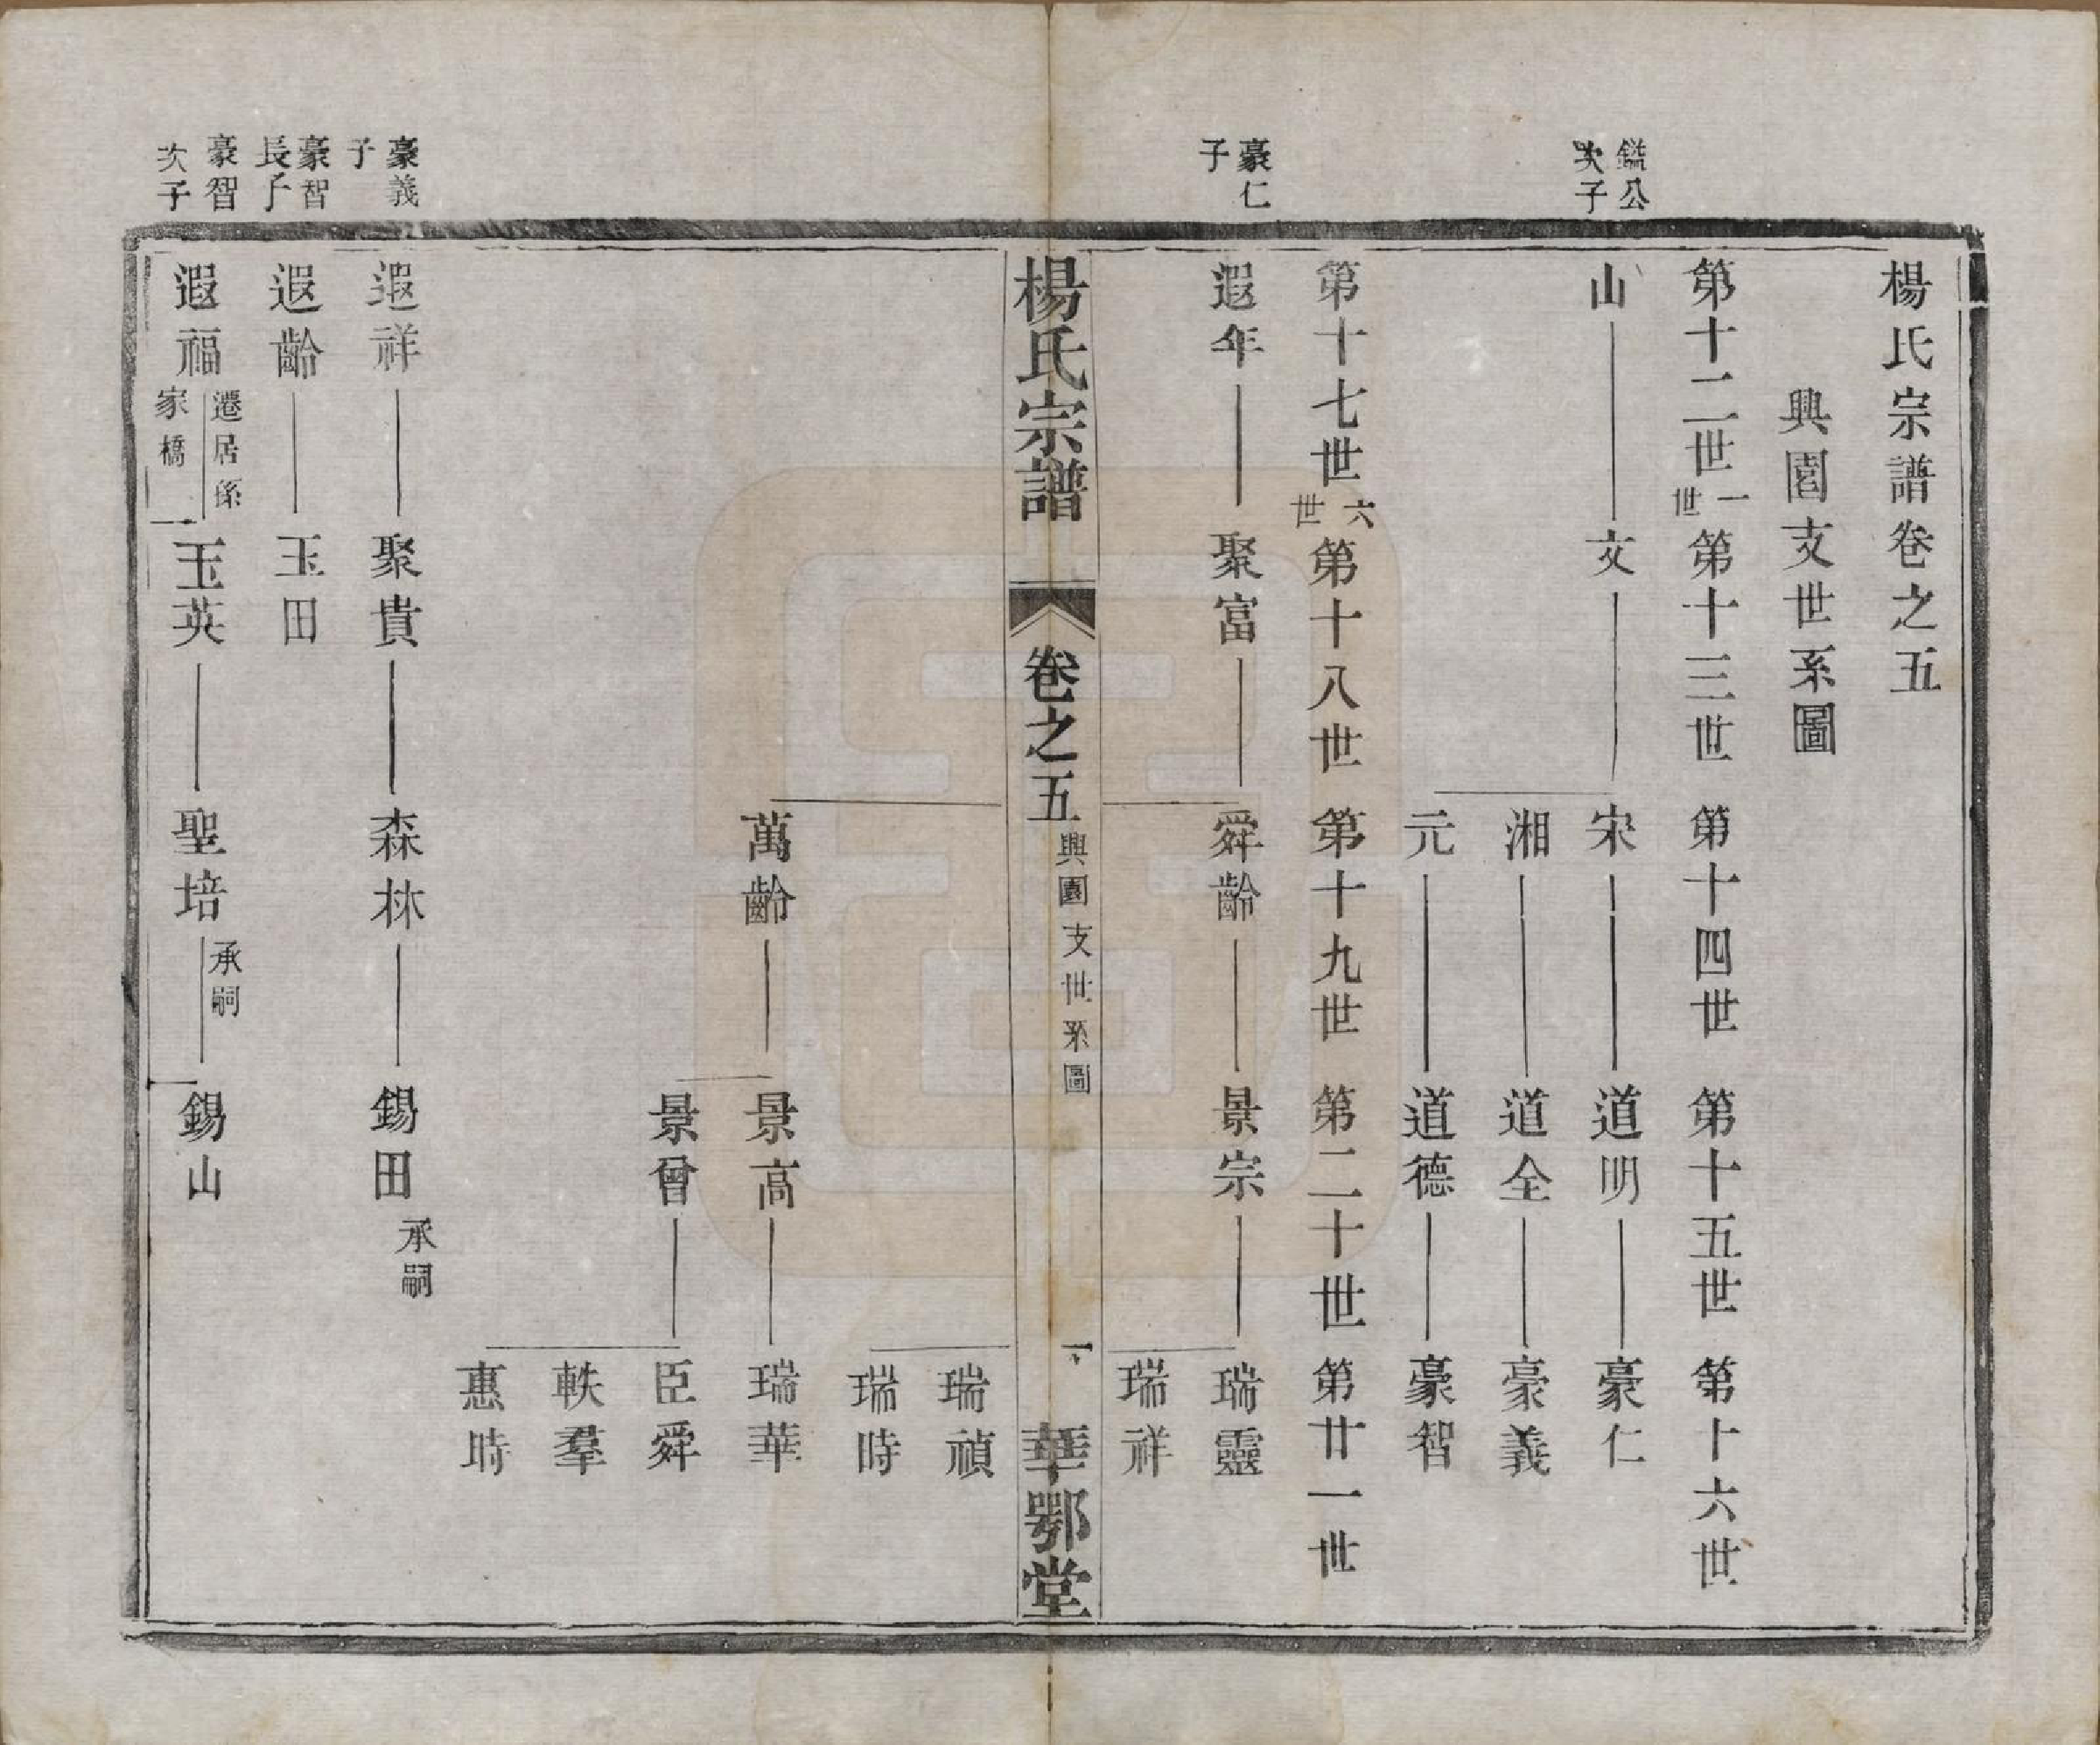 楊氏宗譜卷之五
興園支世系圖
第十二世一世 第十三世 第十四世 第十五世 第十六世
鎰公次子
山 文 宋 道明 豪仁
湘 道全 豪義
元 道德 豪智
第十七世六世 第十八世 第十九世 第二十世 第廿一世
豪仁子
遐年 聚富 舜齡 景宗 瑞靈
瑞祥
楊氏宗譜 卷之五 興園支世系圖 一 華鄂堂
瑞禎
瑞時
萬齡 景高 瑞華
景曾 臣舜
軼羣
惠時
豪義子
遐祥 聚貴 森林 錫田 承嗣
豪智長子
遐齡 玉田
豪智次子
遐福 遷居孫家橋 玉英 聖培 承嗣 錫山